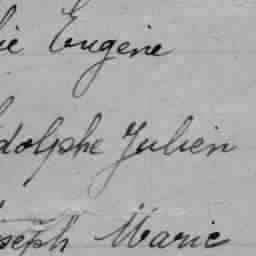 ie Eugène
dolphe Julien
oseph Marie